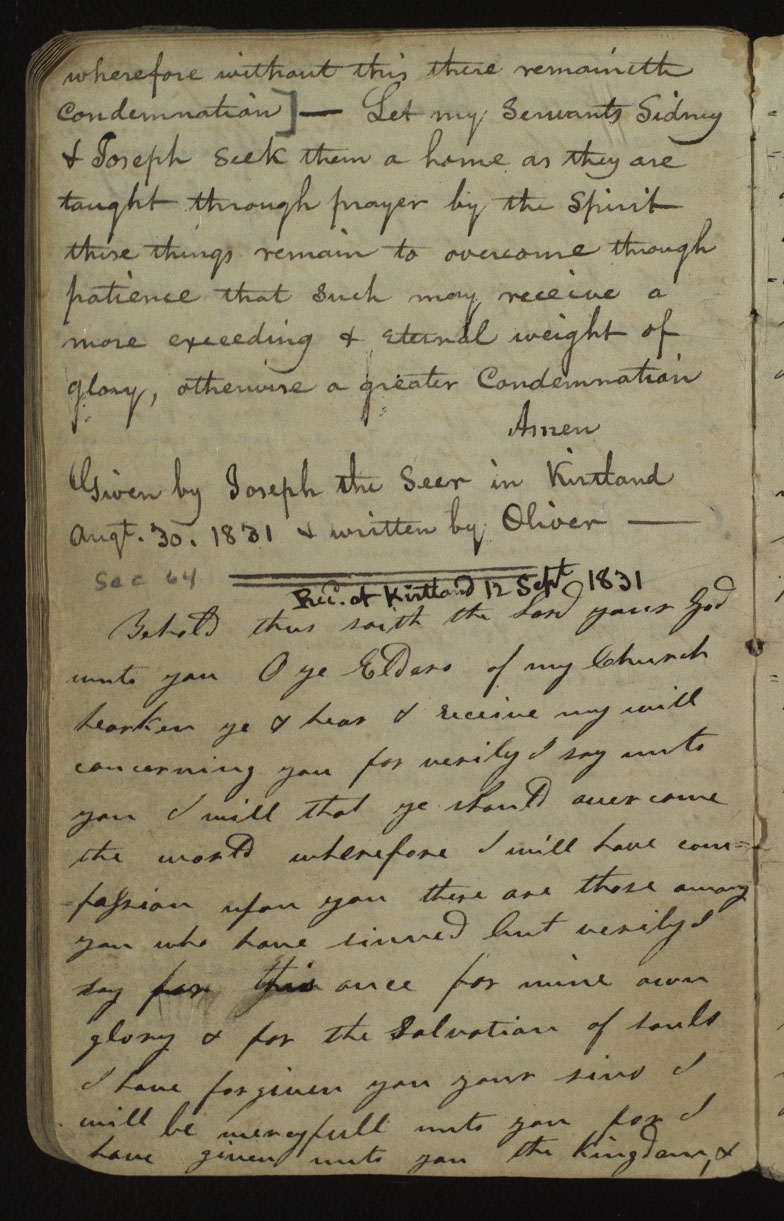 wherefore without this there remaineth
Condemnation] — Let my Servants Sidney
& Joseph Seek them a home as they are
taught through prayer by the Spirit
these things remain to overcome through
patience that Such may receive a
more exceeding & eternal weight of
glory, otherwise a greater Condemnation
Amen
Given by Joseph the Seer in Kirtland
Augt. 30. 1831 & written by Oliver —
Sec 64
Rec. at Kirtland 12 Sept 1831
Behold thus saith the Lord your God
unto you O ye Elders of my Church
hearken ye & hear & receive my will
concerning you for verily I say unto
you I will that ye should overcome
the world wherefore I will have com=
-passion upon you there are those among
you who have sinned but verily I
say for this once for mine own
glory & for the Salvation of souls
I have forgiven you your sins I
will be mercyfull unto you for I
have given unto you the Kingdom, &